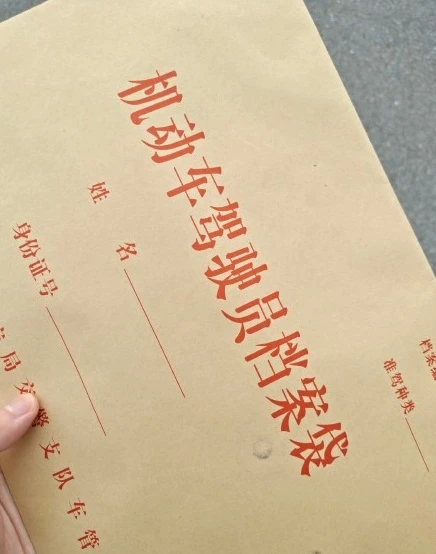 档案
准驾种类
机动车驾驶员档案袋
姓 名
身份证号
局交警支队车管